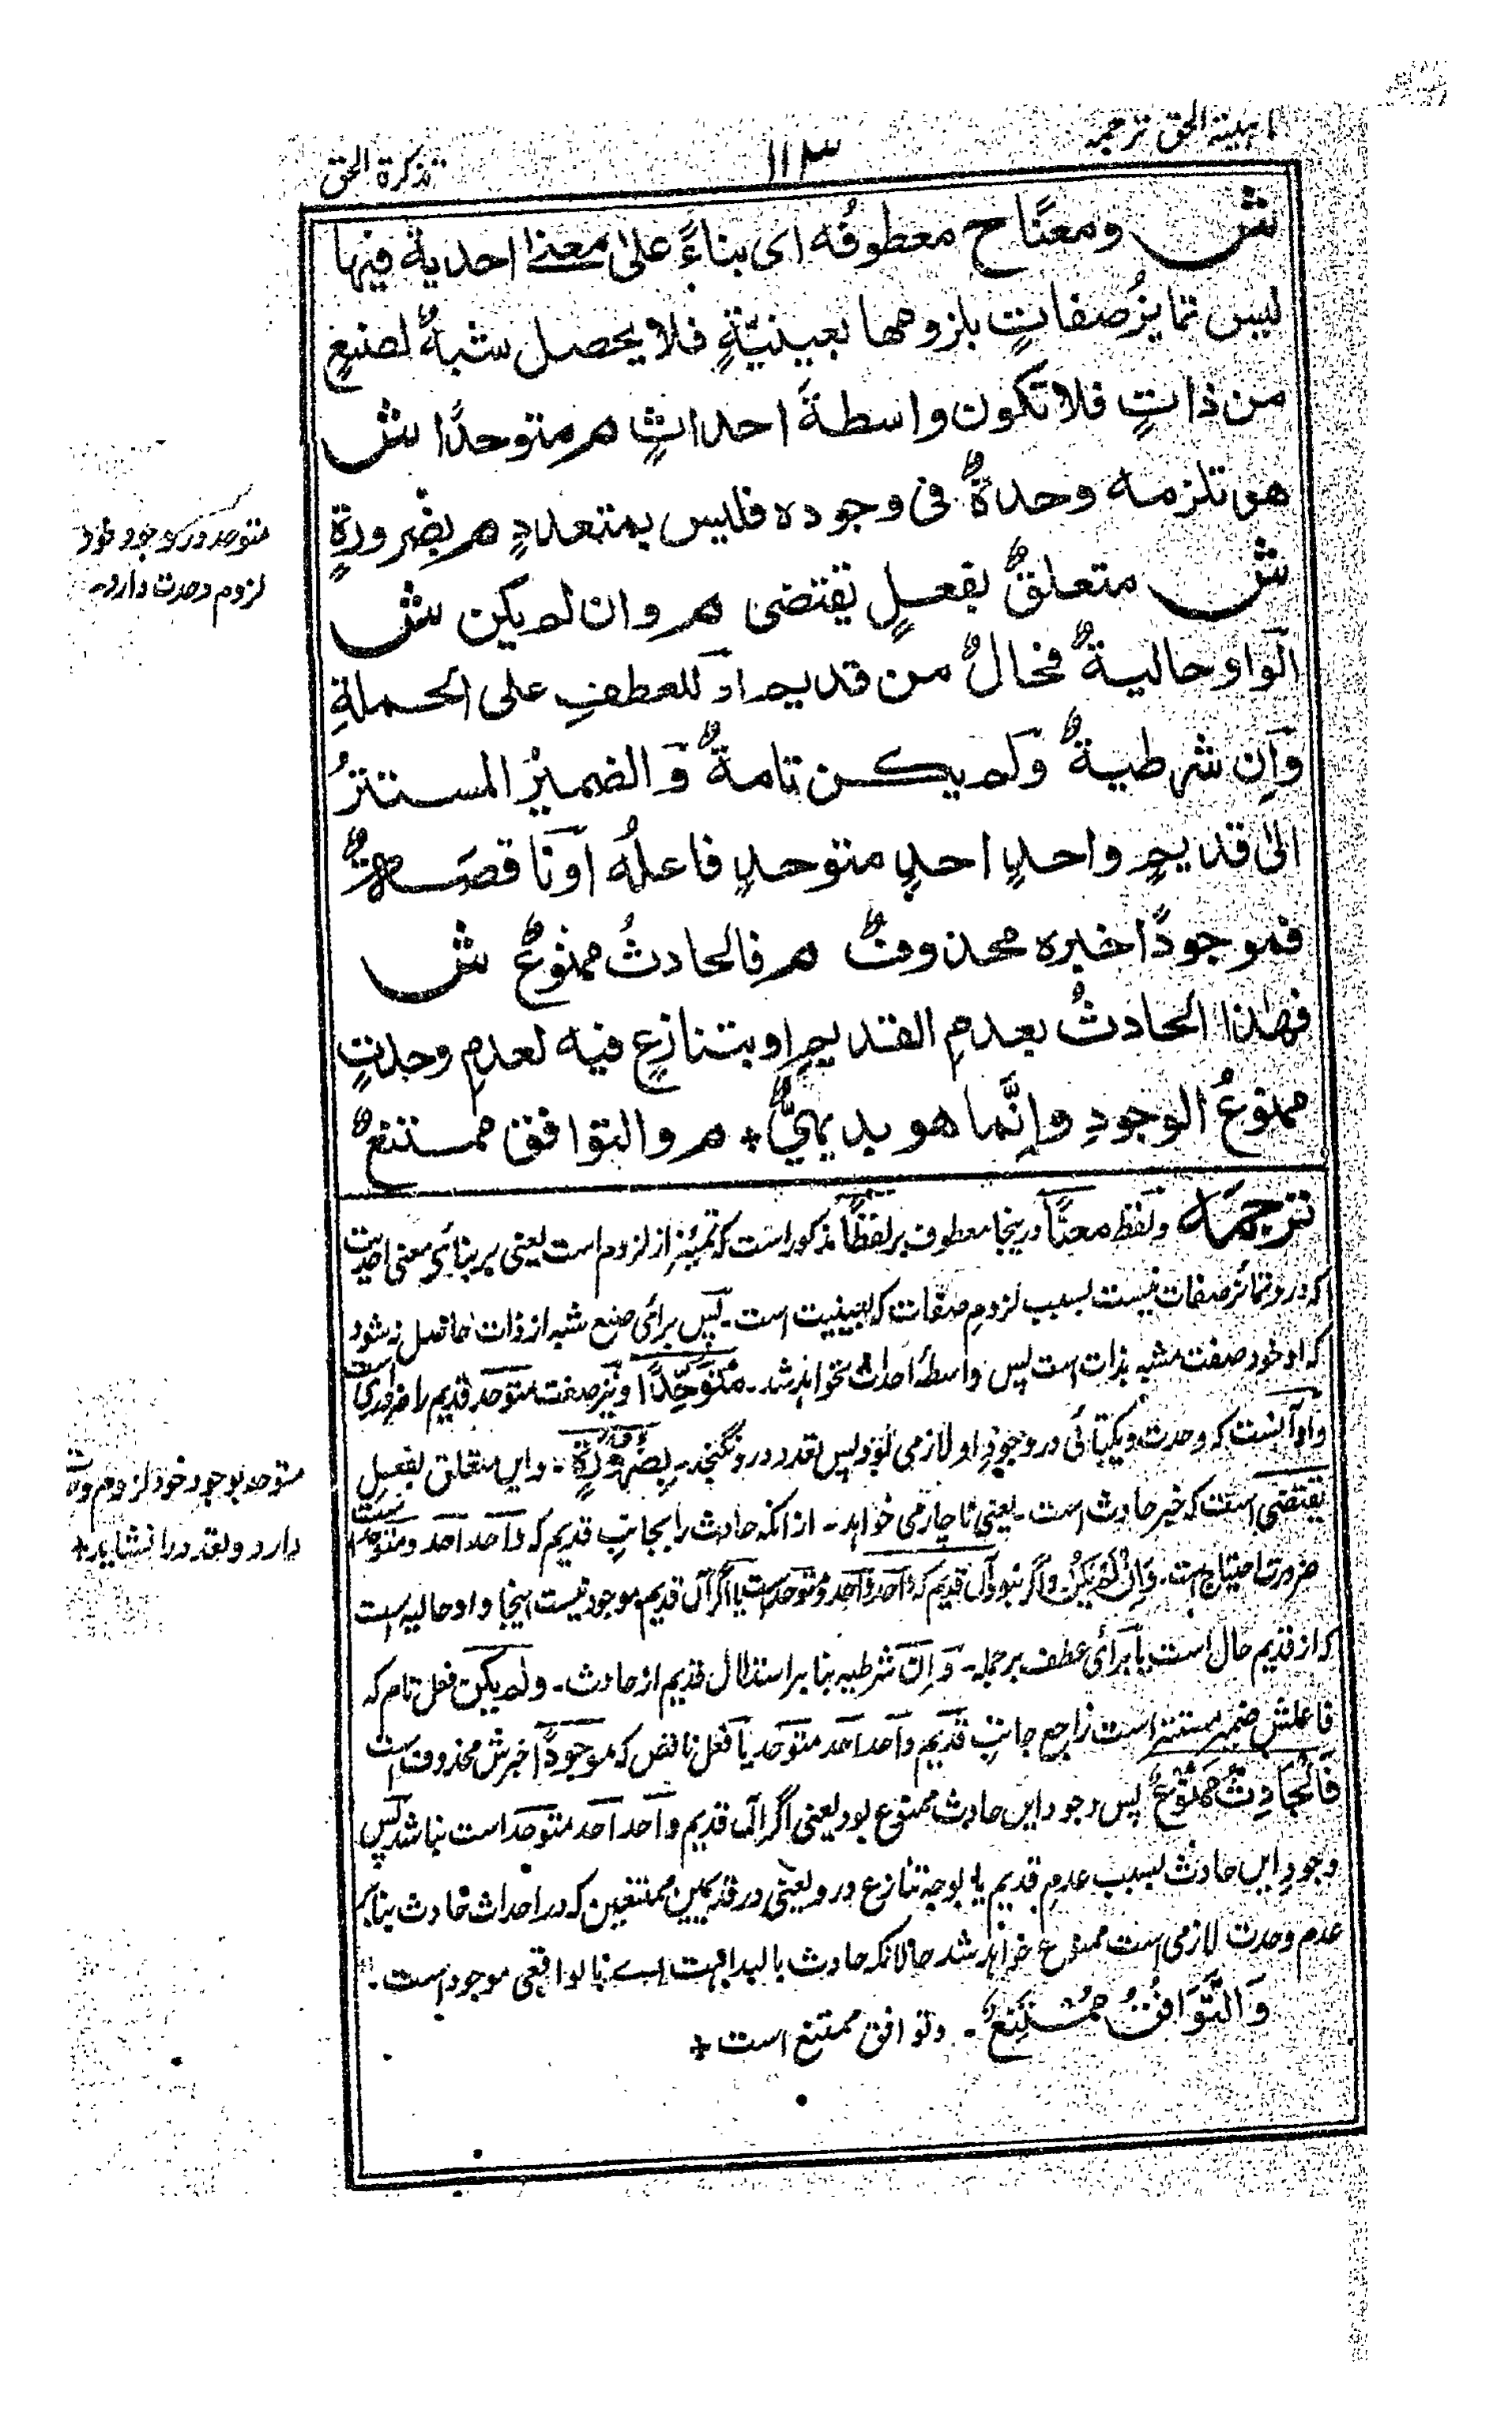 ماہیتہ الحق ترجمہ ۱۱۳ تذکرۃ الحق
ش ومعنًا ح معطوفُه ای بناءً علیٰ معنے احدیة فیها
لیس تمایزُ صفاتٍ بلزومها بعینیّةٍ فلا یحصل شبهٌ لصنعٍ
من ذاتٍ فلا تکون واسطةَ احداثٍ مـ متوحدًا ش
هو تلزمه وحدةٌ فی وجوده فلیس بمتعددٍ مـ بضرورةٍ
ش متعلقٌ بفعلٍ یقتضی مـ وان لم یکن ش
الواو حالیةٌ فحالٌ من قدیم او للعطفِ علی الجملةِ
وَاِن شرطیةٌ ولم یکن تامةٌ وَالضمیرُ المستترُ
الیٰ قدیمٍ واحدٍ احدٍ متوحدٍ فاعلُه اَو ناقصَةٌ
فموجودًا خبره محذوفٌ مـ فالحادثُ ممنوعٌ ش
فهٰذا الحادثُ بعدمِ القدیمِ او بتنازعٍ فیه لعدمِ وحدتٍ
ممنوعُ الوجودِ وإنَّما هو بدیهیٌّ + مـ والتوافق ممتنعٌ
ترجمہ ولفظ معنًا درینجا معطوف بر لفظًا مذکور است کہ تمیز از لزوم است یعنی بر بنائی معنی احدیت
کہ درو تمائز صفات نیست بسبب لزوم صفات کہ بعینیت است۔ پس برائی صنع شبہ از ذات حاصل نہ شود
کہ او خود صفت مشبہ بذات است پس واسطۂ احداث نخواہد شد۔ مُتَوَحِّدًا و نیز صفت متوحد قدیم را ضروری است
و او آنست کہ وحدت و یکتائی در وجودِ او لازمی بود پس تعدد درو نگنجد۔ بِضَرُوْرَةٍ۔ و این متعلق بفعل
یقتضی است کہ خبر حادث است۔ یعنی ناچار می خواہد۔ از انکہ حادث را بجانبِ قدیم کہ واحد احد و متوحد است
ضرورت احتیاج است۔ وَاِنْ لَمْ یَکُنْ۔ و اگر نبود آن قدیم کہ واحد و احد و متوحد است یا اگر آن قدیم موجود نیست اینجا واو حالیہ است
کہ از قدیم حال است یا برائی عطف بر جملہ۔ وَاِن شرطیہ بنا بر استدلال قدیم از حادث۔ ولم یکن فعل تام کہ
فاعلش ضمیر مستتر است راجع جانبِ قدیم واحد احد متوحد یا فعل ناقص کہ موجودًا خبرش محذوف است
فَالْحَادِثُ مَمْنُوْعٌ پس وجود این حادث ممنوع بود یعنی اگر آن قدیم واحد احد متوحد است نباشد پس
وجودِ این حادث بسبب عدمِ قدیم یا بوجہ تنازع درو یعنی در قدیمین ممتنعین کہ در احداث حادث بنابر
عدم وحدت لازمی است ممنوع خواہد شد حالانکہ حادث بالبداہت اے بالواقعی موجود است۔
وَالتَّوَافُقُ مُمْتَنِعٌ۔ و توافق ممتنع است +
متوحد در وجود خود
لزوم وحدت دارد۔
متوحد بوجود خود لزوم وحدت
دارد و تعدد را نشاید +